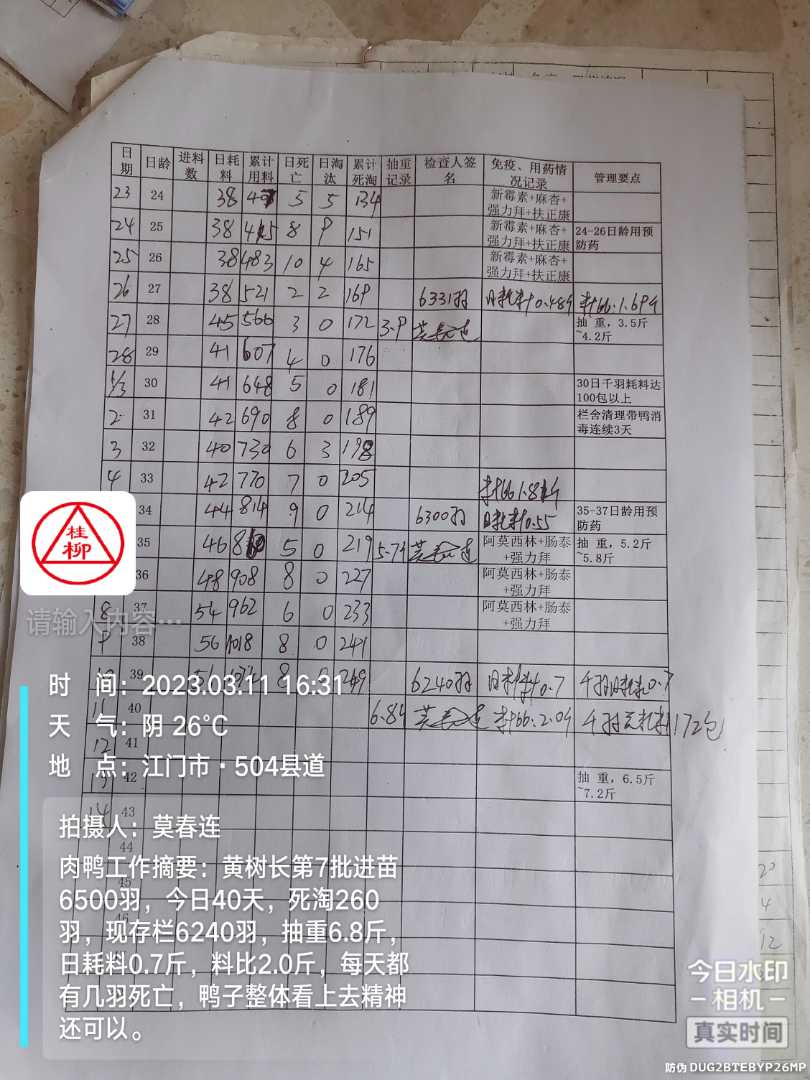 日期 日龄 进料数 日耗料 累计用料 日死亡 日淘汰 累计死淘 抽重记录 检查人签名 免疫、用药情况记录 管理要点
23 24 38 5 5 134 新霉素+麻杏+强力拜+扶正康
24 25 38 8 9 151 新霉素+麻杏+强力拜+扶正康 24-26日龄用预防药
25 26 38 483 10 4 165 新霉素+麻杏+强力拜+扶正康
26 27 38 521 2 2 169 6331羽 日耗料0.48斤 料比:1.69斤
27 28 45 566 3 0 172 3.9 抽 重,3.5斤~4.2斤
28 29 41 607 4 0 176
1/3 30 41 648 5 0 181 30日千羽耗料达100包以上
2 31 42 690 8 0 189 栏舍清理带鸭消毒连续3天
3 32 40 730 6 3 198
4 33 42 770 7 0 205
34 44 814 9 0 214 6300羽 日耗料0.55 35-37日龄用预防药
35 46 5 0 219 阿莫西林+肠泰+强力拜 抽 重,5.2斤~5.8斤
36 48 908 8 0 227 阿莫西林+肠泰+强力拜
8 37 54 962 6 0 233 阿莫西林+肠泰+强力拜
9 38 56 1018 8 0 241
10 39 8 0 249 6240羽 日耗料0.7
11 40 6.8斤 料比:2.0斤 172包
12 41
13 42 抽 重,6.5斤~7.2斤
14 43
桂柳
请输入内容…
时 间:2023.03.11 16:31
天 气:阴 26°C
地 点:江门市·504县道
拍摄人:莫春连
肉鸭工作摘要:黄树长第7批进苗
6500羽,今日40天,死淘260
羽,现存栏6240羽,抽重6.8斤,
日耗料0.7斤,料比2.0斤,每天都
有几羽死亡,鸭子整体看上去精神
还可以。
今日水印
相机
真实时间
防伪 DUG2BTEBYP26MP